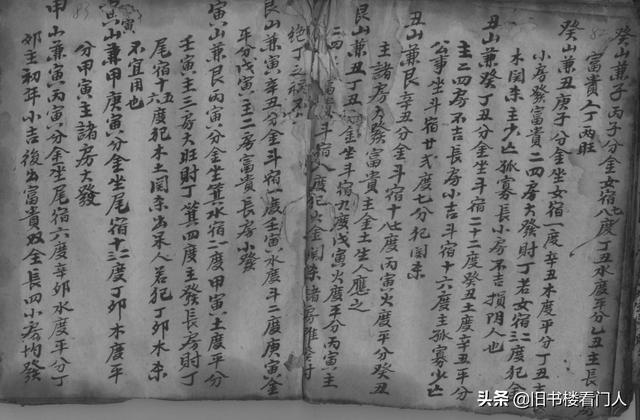 癸山兼子丙子分金女宿八七度丁丑水度平分乙丑主長
富貴人丁兩旺
癸山兼丑庚子分金坐女宿一度辛丑木度平分丁丑
小房發富貴二四房大發財丁若女宿三二度犯金
木関杀主少亡孤寡長小房不吉損陰人也
丑山兼癸丁丑分金坐斗宿二十二度癸丑土度辛丑平分
主二四房不吉長房小吉斗宿十六度主孤寡少亡
公事坐斗宿廿弍度七分犯関杀
丑山兼艮辛丑分金斗宿十七度丙寅火度平分癸丑
主諸房大發富貴主金土生人應之
艮山兼丑丁丑分金坐斗宿九度戊寅火度平分丙寅主
二四富貴斗宿八度犯火金関杀諸房
絕丁
艮山兼寅辛丑分金斗宿一度壬寅水度斗二度庚寅金
平分戊寅主二房富貴長房小發
寅山兼艮丙寅分金坐箕水宿二度甲寅土度平分
壬寅主三房大旺財丁箕四度主發長房財丁
尾宿十五度犯木土関杀出呆人若犯丁卯木杀
不宜用也
寅山兼甲庚寅分金坐尾宿十三度丁卯木度平
分甲寅主諸房大發
甲山兼寅丙寅分金坐尾宿六度辛卯水度平分丁
卯主初年小吉後出富貴双全長四小房均發
头条 @旧书楼看门人